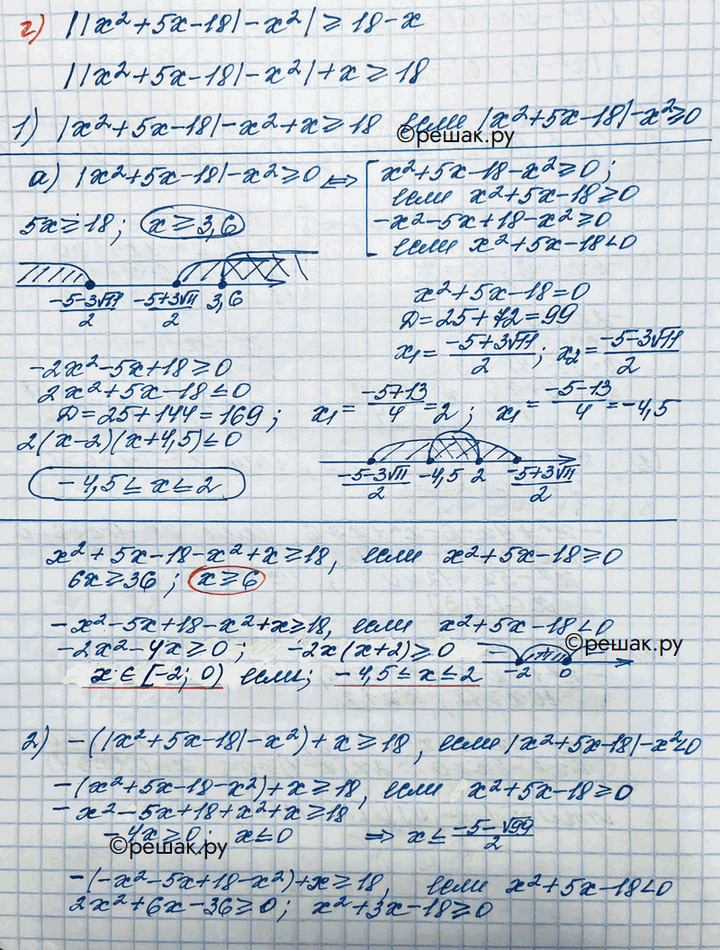 г) ||x²+5x-18|-x²| ≥ 18-x
||x²+5x-18|-x²|+x ≥ 18
1) |x²+5x-18|-x²+x ≥ 18 если |x²+5x-18|-x² ≥ 0
©решак.ру
а) |x²+5x-18|-x² ≥ 0 <=> [ x²+5x-18-x² ≥ 0;
если x²+5x-18 ≥ 0
-x²-5x+18-x² ≥ 0
если x²+5x-18 < 0
5x ≥ 18; x ≥ 3,6
(-5-3√11)/2 (-5+3√11)/2 3,6
x²+5x-18=0
D=25+72=99
x₁ = (-5+3√11)/2; x₂ = (-5-3√11)/2
-2x²-5x+18 ≥ 0
2x²+5x-18 ≤ 0
D=25+144=169; x₁ = (-5+13)/4 = 2; x₁ = (-5-13)/4 = -4,5
2(x-2)(x+4,5) ≤ 0
-4,5 ≤ x ≤ 2
(-5-3√11)/2 -4,5 2 (-5+3√11)/2
x²+5x-18-x²+x ≥ 18, если x²+5x-18 ≥ 0
6x ≥ 36; x ≥ 6
-x²-5x+18-x²+x ≥ 18, если x²+5x-18 < 0
©решак.ру
-2x²-4x ≥ 0; -2x(x+2) ≥ 0
- + -2 0
x ∈ [-2; 0) если; -4,5 ≤ x ≤ 2
2) -(|x²+5x-18|-x²)+x ≥ 18, если |x²+5x-18|-x² < 0
-(x²+5x-18-x²)+x ≥ 18, если x²+5x-18 ≥ 0
-x²-5x+18+x²+x ≥ 18
-4x ≥ 0; x ≤ 0 => x ≤ (-5-√99)/2
©решак.ру
-(-x²-5x+18-x²)+x ≥ 18, если x²+5x-18 < 0
2x²+6x-36 ≥ 0; x²+3x-18 ≥ 0